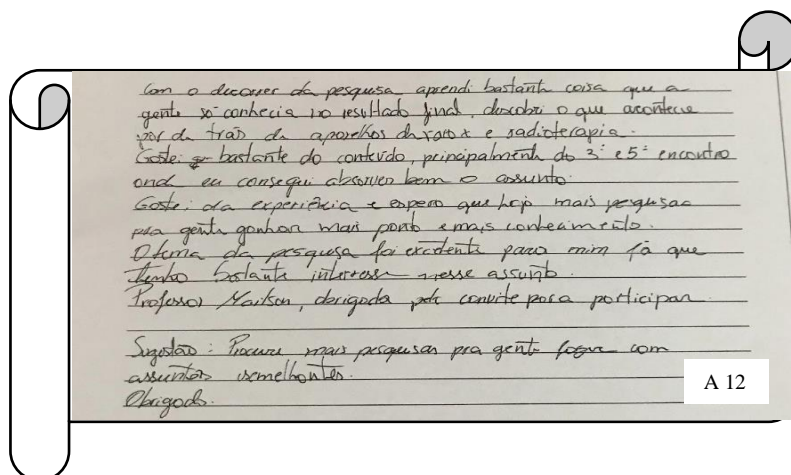 Com o decorrer da pesquisa aprendi bastante coisa que a
gente só conhecia no resultado final, descobri o que acontece
por de trás de aparelhos de raio x e radioterapia.
Gostei bastante do conteúdo, principalmente do 3º e 5º encontro
onde eu consegui absorver bem o assunto.
Gostei da experiência e espero que haja mais pesquisas
pra gente ganhar mais ponto e mais conhecimento.
O tema da pesquisa foi excelente para mim já que
tenho bastante interesse nesse assunto.
Professor obrigada pelo convite para participar.
Sugestão: Procure mais pesquisas pra gente com
assuntos semelhantes.
Obrigado.
A 12